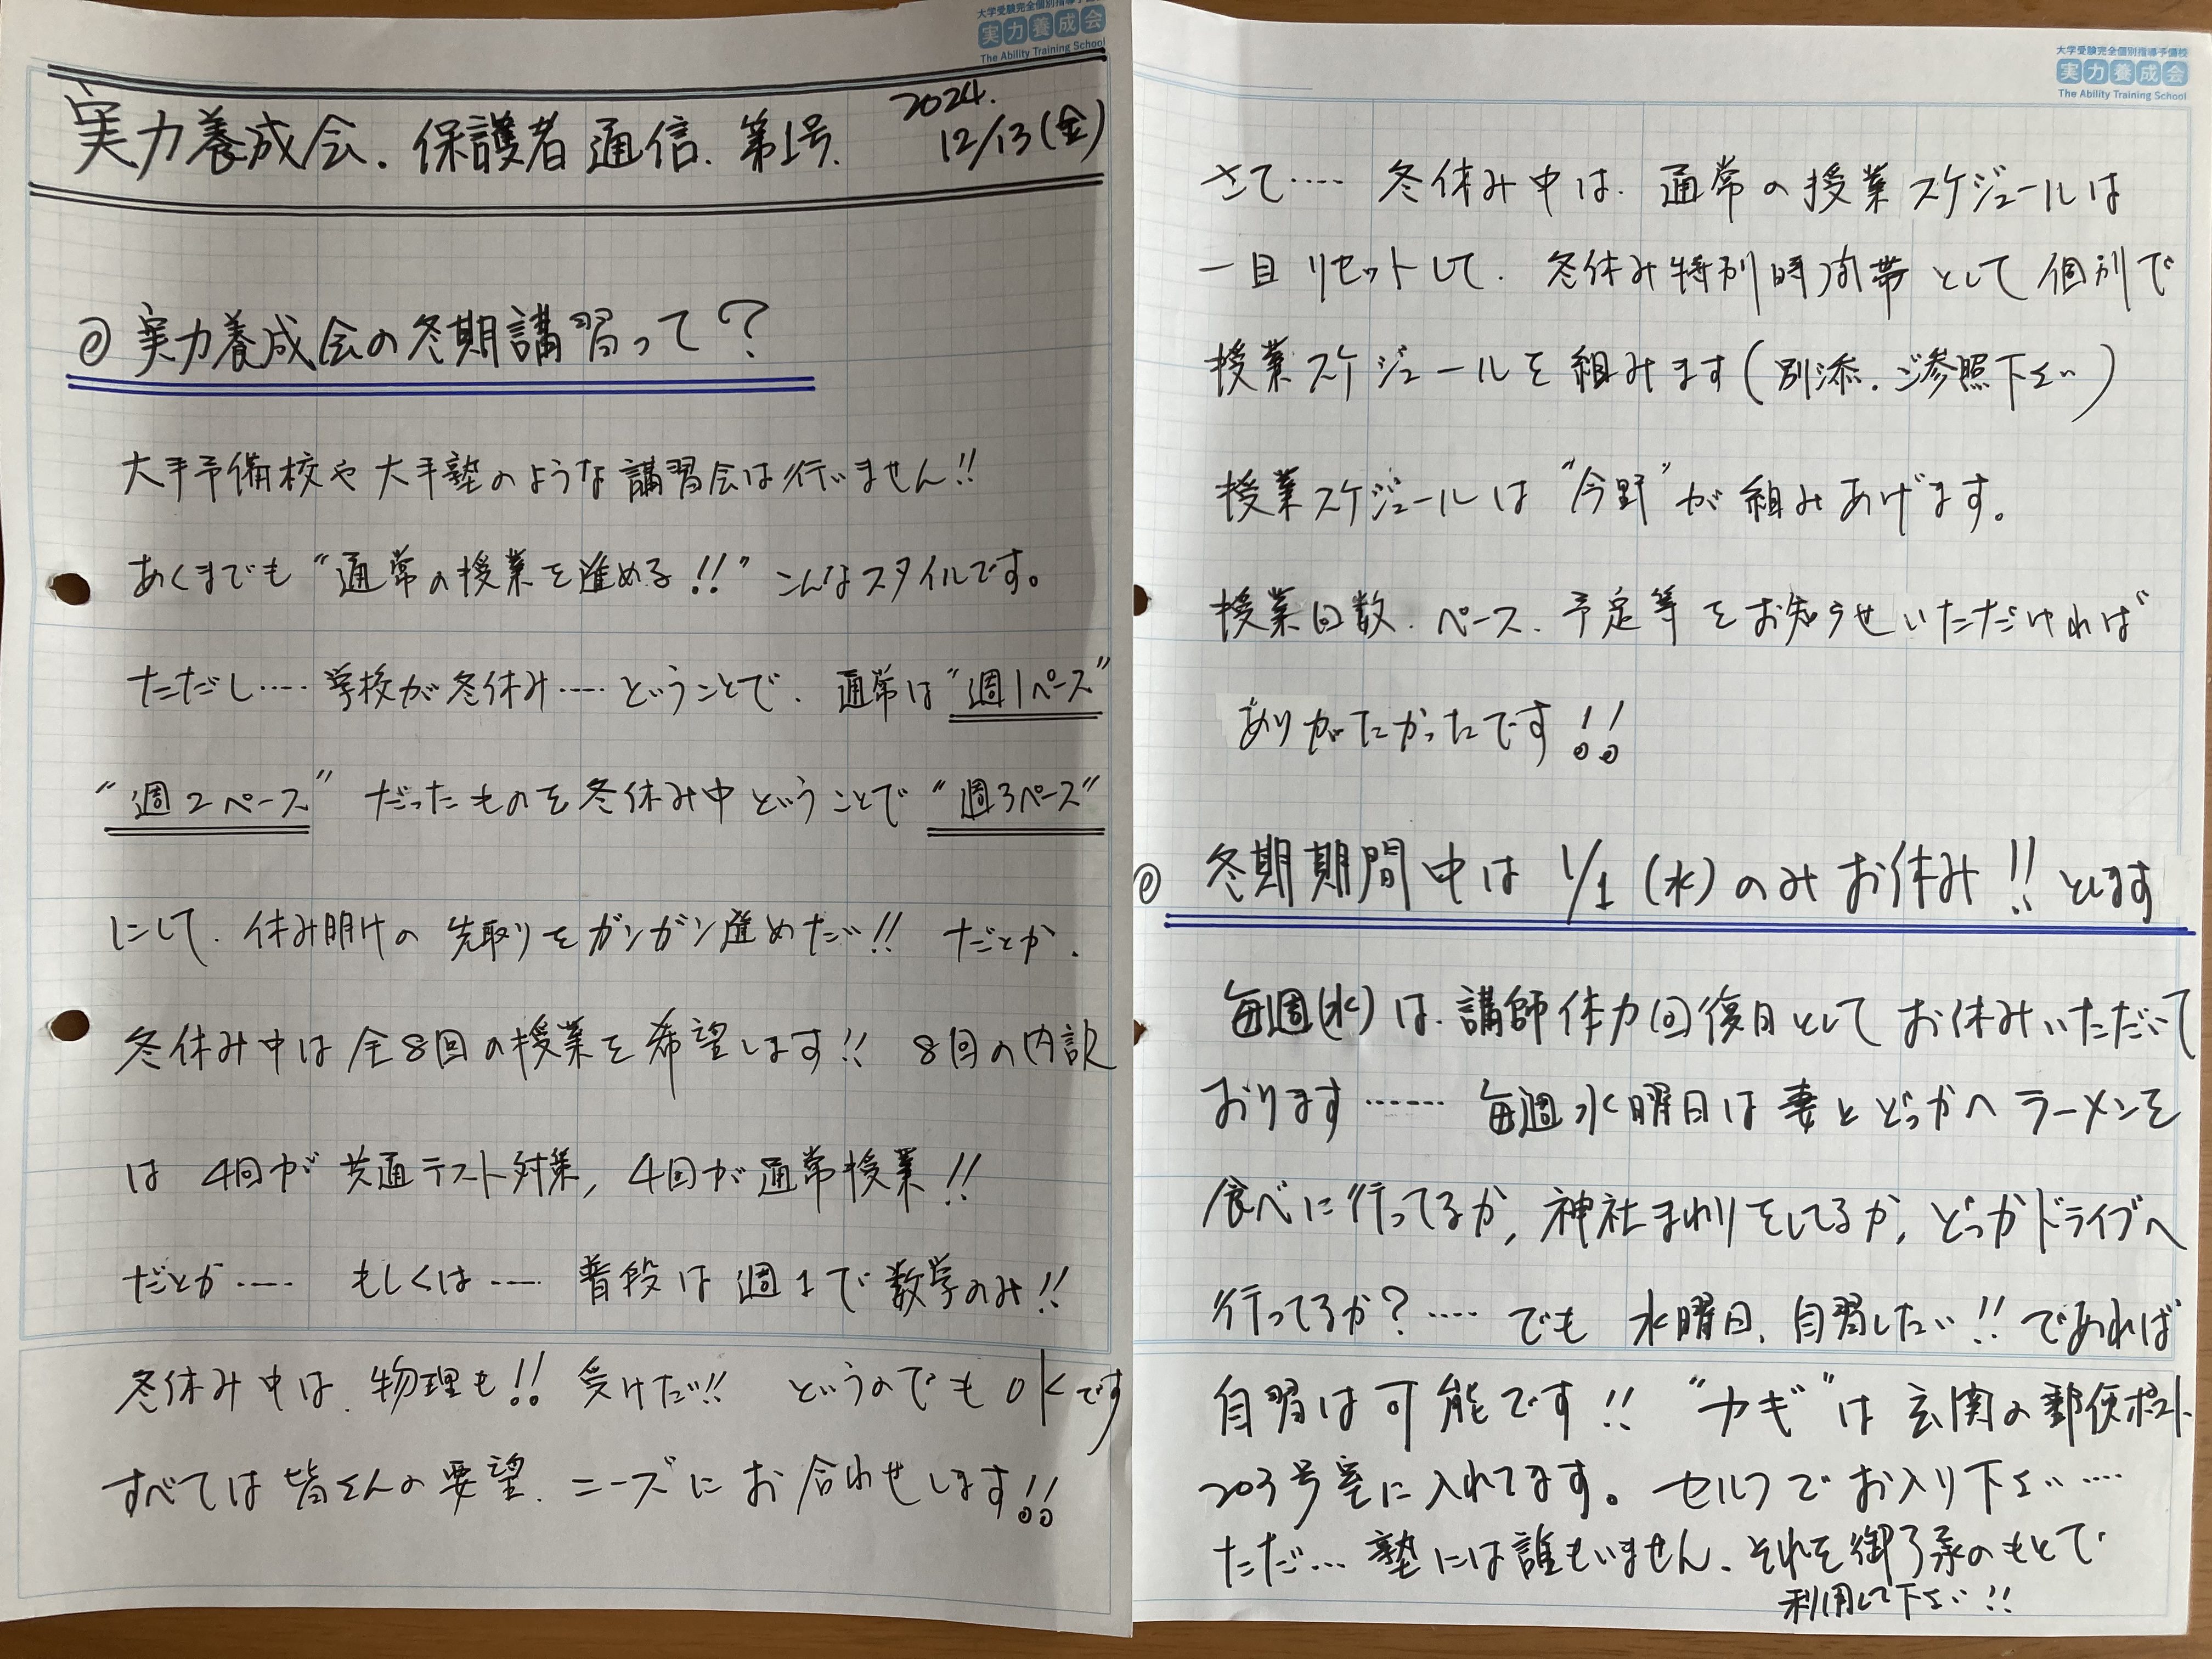 大学受験完全個別指導予備校
実力養成会
The Ability Training School
実力養成会.保護者通信.第1号.
2024.
12/13(金)
◎実力養成会の冬期講習って?
大手予備校や大手塾のような講習会は行いません!!
あくまでも“通常の授業を進める!!”こんなスタイルです。
ただし……学校が冬休み……ということで、通常は“週1ペース”
“週2ペース”だったものを冬休み中ということで“週3ペース”
にして、休み明けの先取りをガンガン進めたい!!だとか、
冬休み中は全8回の授業を希望します!!8回の内訳
は4回が共通テスト対策,4回が通常授業!!
だとか……もしくは……普段は週1で数学のみ!!
冬休み中は、物理も!!受けたい!!というのでもOKです
すべては皆さんの要望、ニーズにお合わせします!!
大学受験完全個別指導予備校
実力養成会
The Ability Training School
さて……冬休み中は、通常の授業スケジュールは
一旦リセットして、冬休み特別時間帯として個別で
授業スケジュールを組みます(別添、ご参照下さい)
授業スケジュールは“今野”が組みあげます。
授業回数、ペース、予定等をお知らせいただければ
ありがたかったです!!
◎冬期期間中は1/1(水)のみお休み!!とします
毎週(水)は、講師体力回復日としてお休みいただいて
おります……毎週水曜日は妻とどっかへラーメンを
食べに行ってるか,神社まわりをしてるか,どっかドライブへ
行ってるか?……でも水曜日、自習したい!!であれば
自習は可能です!!“カギ”は玄関の郵便ポスト
203号室に入れてます。セルフでお入り下さい……
ただ…塾には誰もいません、それを御了承のもとで
利用して下さい!!